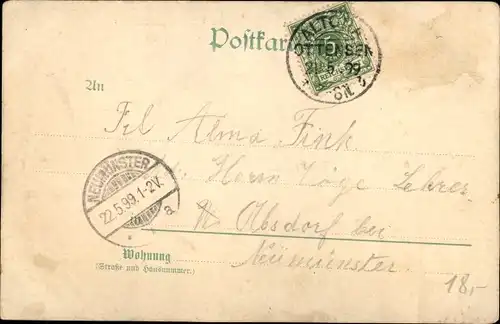 Postkar
ALTONA
OTTENSEN
21.5.99
An
Frl Alma Fink
Herrn Vöge Lehrer
NEUMÜNSTER
22.5.99.1-2V.
a
Absdorf bei
Neumünster
Wohnung
(Straße und Hausnummer.)
18,-